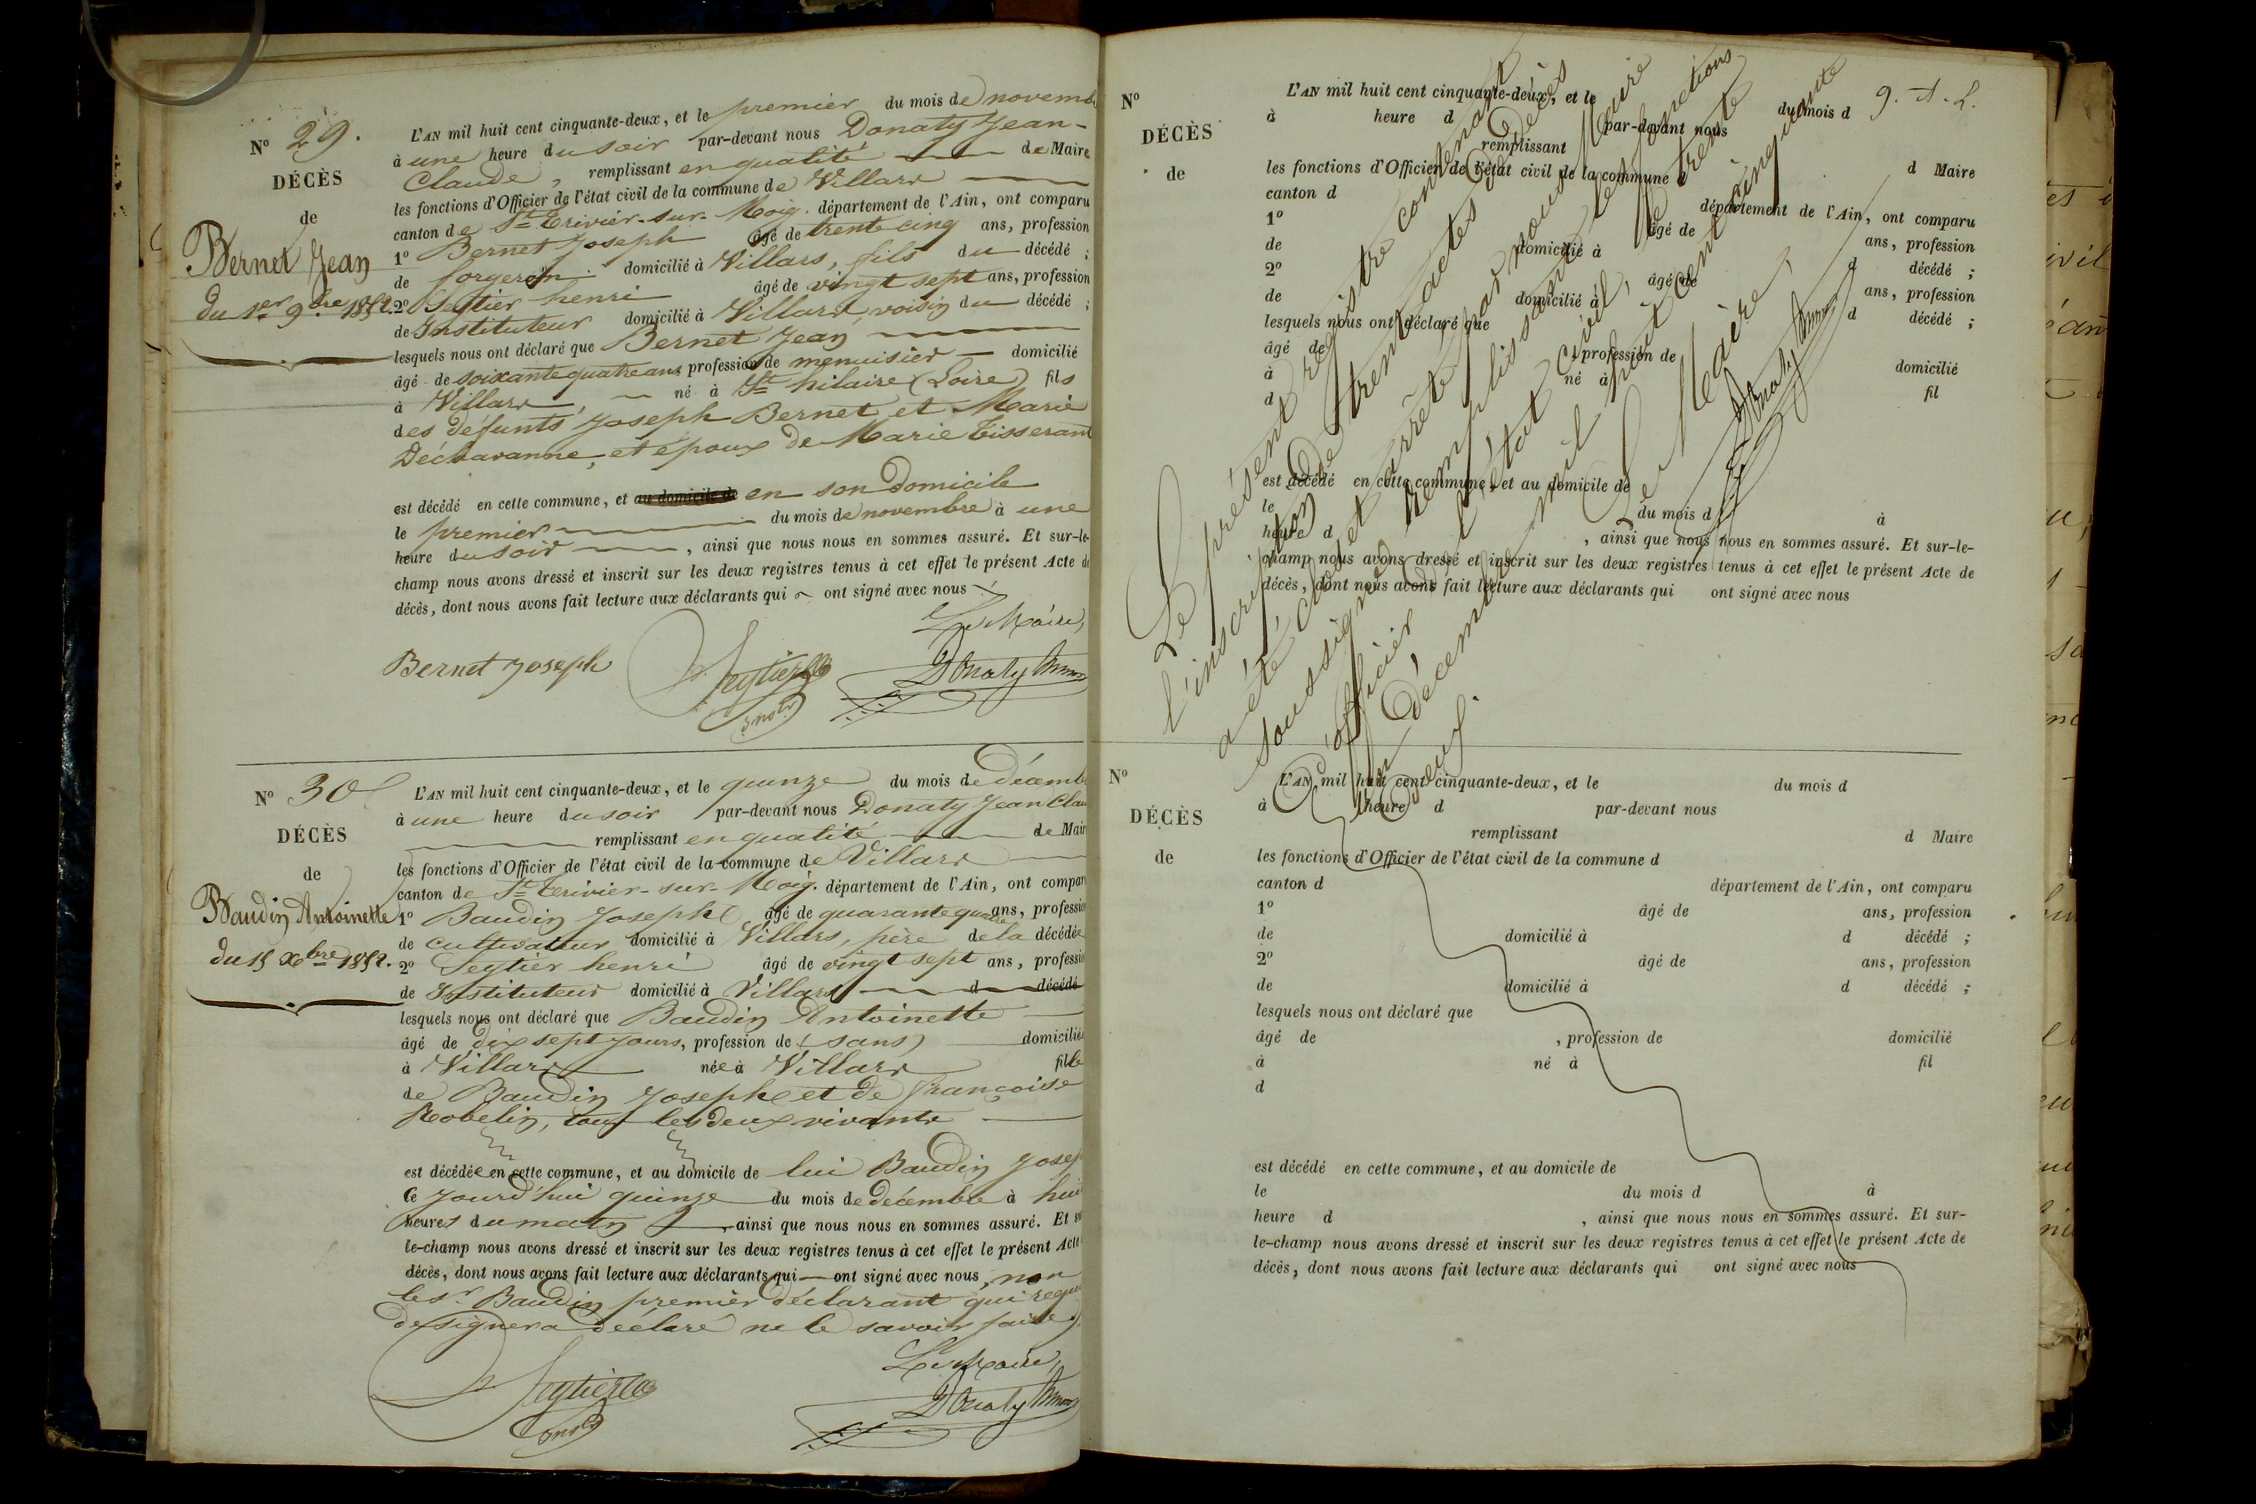 N° 29.
DÉCÈS
de
Bernet Jean
du 1er 9bre 1852.
L'AN mil huit cent cinquante-deux, et le premier du mois de novemb
à une heure du soir par-devant nous Donaty Jean-
Claude, remplissant en qualité de Maire
les fonctions d'Officier de l'état civil de la commune de Villars
canton de St Trivier-sur-Moig. département de l'Ain, ont comparu
1° Bernet Joseph âgé de trente cinq ans, profession
de forgeron domicilié à Villars, fils du décédé ;
2° Seytier henri âgé de vingt sept ans, profession
de Instituteur domicilié à Villars, voisin du décédé ;
lesquels nous ont déclaré que Bernet Jean
âgé de soixante quatre ans, profession de menuisier domicilié
à Villars né à St hilaire (Loire) fils
des défunts Joseph Bernet et Marie
Déchavanne, et époux de Marie Tisserant
est décédé en cette commune, et au domicile de en son domicile
le premier du mois de novembre à une
heure du soir, ainsi que nous nous en sommes assuré. Et sur-le-
champ nous avons dressé et inscrit sur les deux registres tenus à cet effet le présent Acte de
décès, dont nous avons fait lecture aux déclarants qui ont signé avec nous
Le Maire,
Bernet Joseph
Seytier
Donaty
N° 30
DÉCÈS
de
Baudin Antoinette
du 15 Xbre 1852.
L'AN mil huit cent cinquante-deux, et le quinze du mois de décemb
à une heure du soir par-devant nous Donaty Jean Clau
remplissant en qualité de Mair
les fonctions d'Officier de l'état civil de la commune de Villars
canton de St Trivier-sur-Moig. département de l'Ain, ont compar
1° Baudin Joseph âgé de quarante quatre ans, professio
de cultivateur domicilié à Villars, père de la décédée
2° Seytier henri âgé de vingt sept ans, professio
de Instituteur domicilié à Villars d décédé
lesquels nous ont déclaré que Baudin Antoinette
âgé de dix sept jours, profession de (sans) domiciliée
à Villars née à Villars fille
de Baudin Joseph et de françoise
Robelin, tous les deux vivants
est décédée en cette commune, et au domicile de lui Baudin Josep
Ce jourd'hui quinze du mois de décembre à hui
heures du matin, ainsi que nous nous en sommes assuré. Et su
le-champ nous avons dressé et inscrit sur les deux registres tenus à cet effet le présent Acte
décès, dont nous avons fait lecture aux déclarants qui ont signé avec nous, non
le sr Baudin premier déclarant qui requi
de signer a déclaré ne le savoir faire.
Le Maire,
Seytier
Donaty
9. A. L.
N°
DÉCÈS
de
L'AN mil huit cent cinquante-deux, et le du mois d
à heure d par-devant nous
remplissant d Maire
les fonctions d'Officier de l'état civil de la commune d
canton d département de l'Ain, ont comparu
1° âgé de ans, profession
de domicilié à d décédé ;
2° âgé de ans, profession
de domicilié à d décédé ;
lesquels nous ont déclaré que
âgé de , profession de domicilié
à né à fil
d
est décédé en cette commune, et au domicile de
le du mois d à
heure d , ainsi que nous nous en sommes assuré. Et sur-le-
champ nous avons dressé et inscrit sur les deux registres tenus à cet effet le présent Acte de
décès, dont nous avons fait lecture aux déclarants qui ont signé avec nous
Le présent registre contenant
l'inscription de trente actes de Décès
a été clos et arrêté par nous Maire
soussigné remplissant les fonctions
d'officier de l'état civil, le trente
un décembre mil huit cent cinquante
deux.
Le Maire,
Donaty
N°
DÉCÈS
de
L'AN mil huit cent cinquante-deux, et le du mois d
à heure d par-devant nous
remplissant d Maire
les fonctions d'Officier de l'état civil de la commune d
canton d département de l'Ain, ont comparu
1° âgé de ans, profession
de domicilié à d décédé ;
2° âgé de ans, profession
de domicilié à d décédé ;
lesquels nous ont déclaré que
âgé de , profession de domicilié
à né à fil
d
est décédé en cette commune, et au domicile de
le du mois d à
heure d , ainsi que nous nous en sommes assuré. Et sur-
le-champ nous avons dressé et inscrit sur les deux registres tenus à cet effet le présent Acte de
décès, dont nous avons fait lecture aux déclarants qui ont signé avec nous